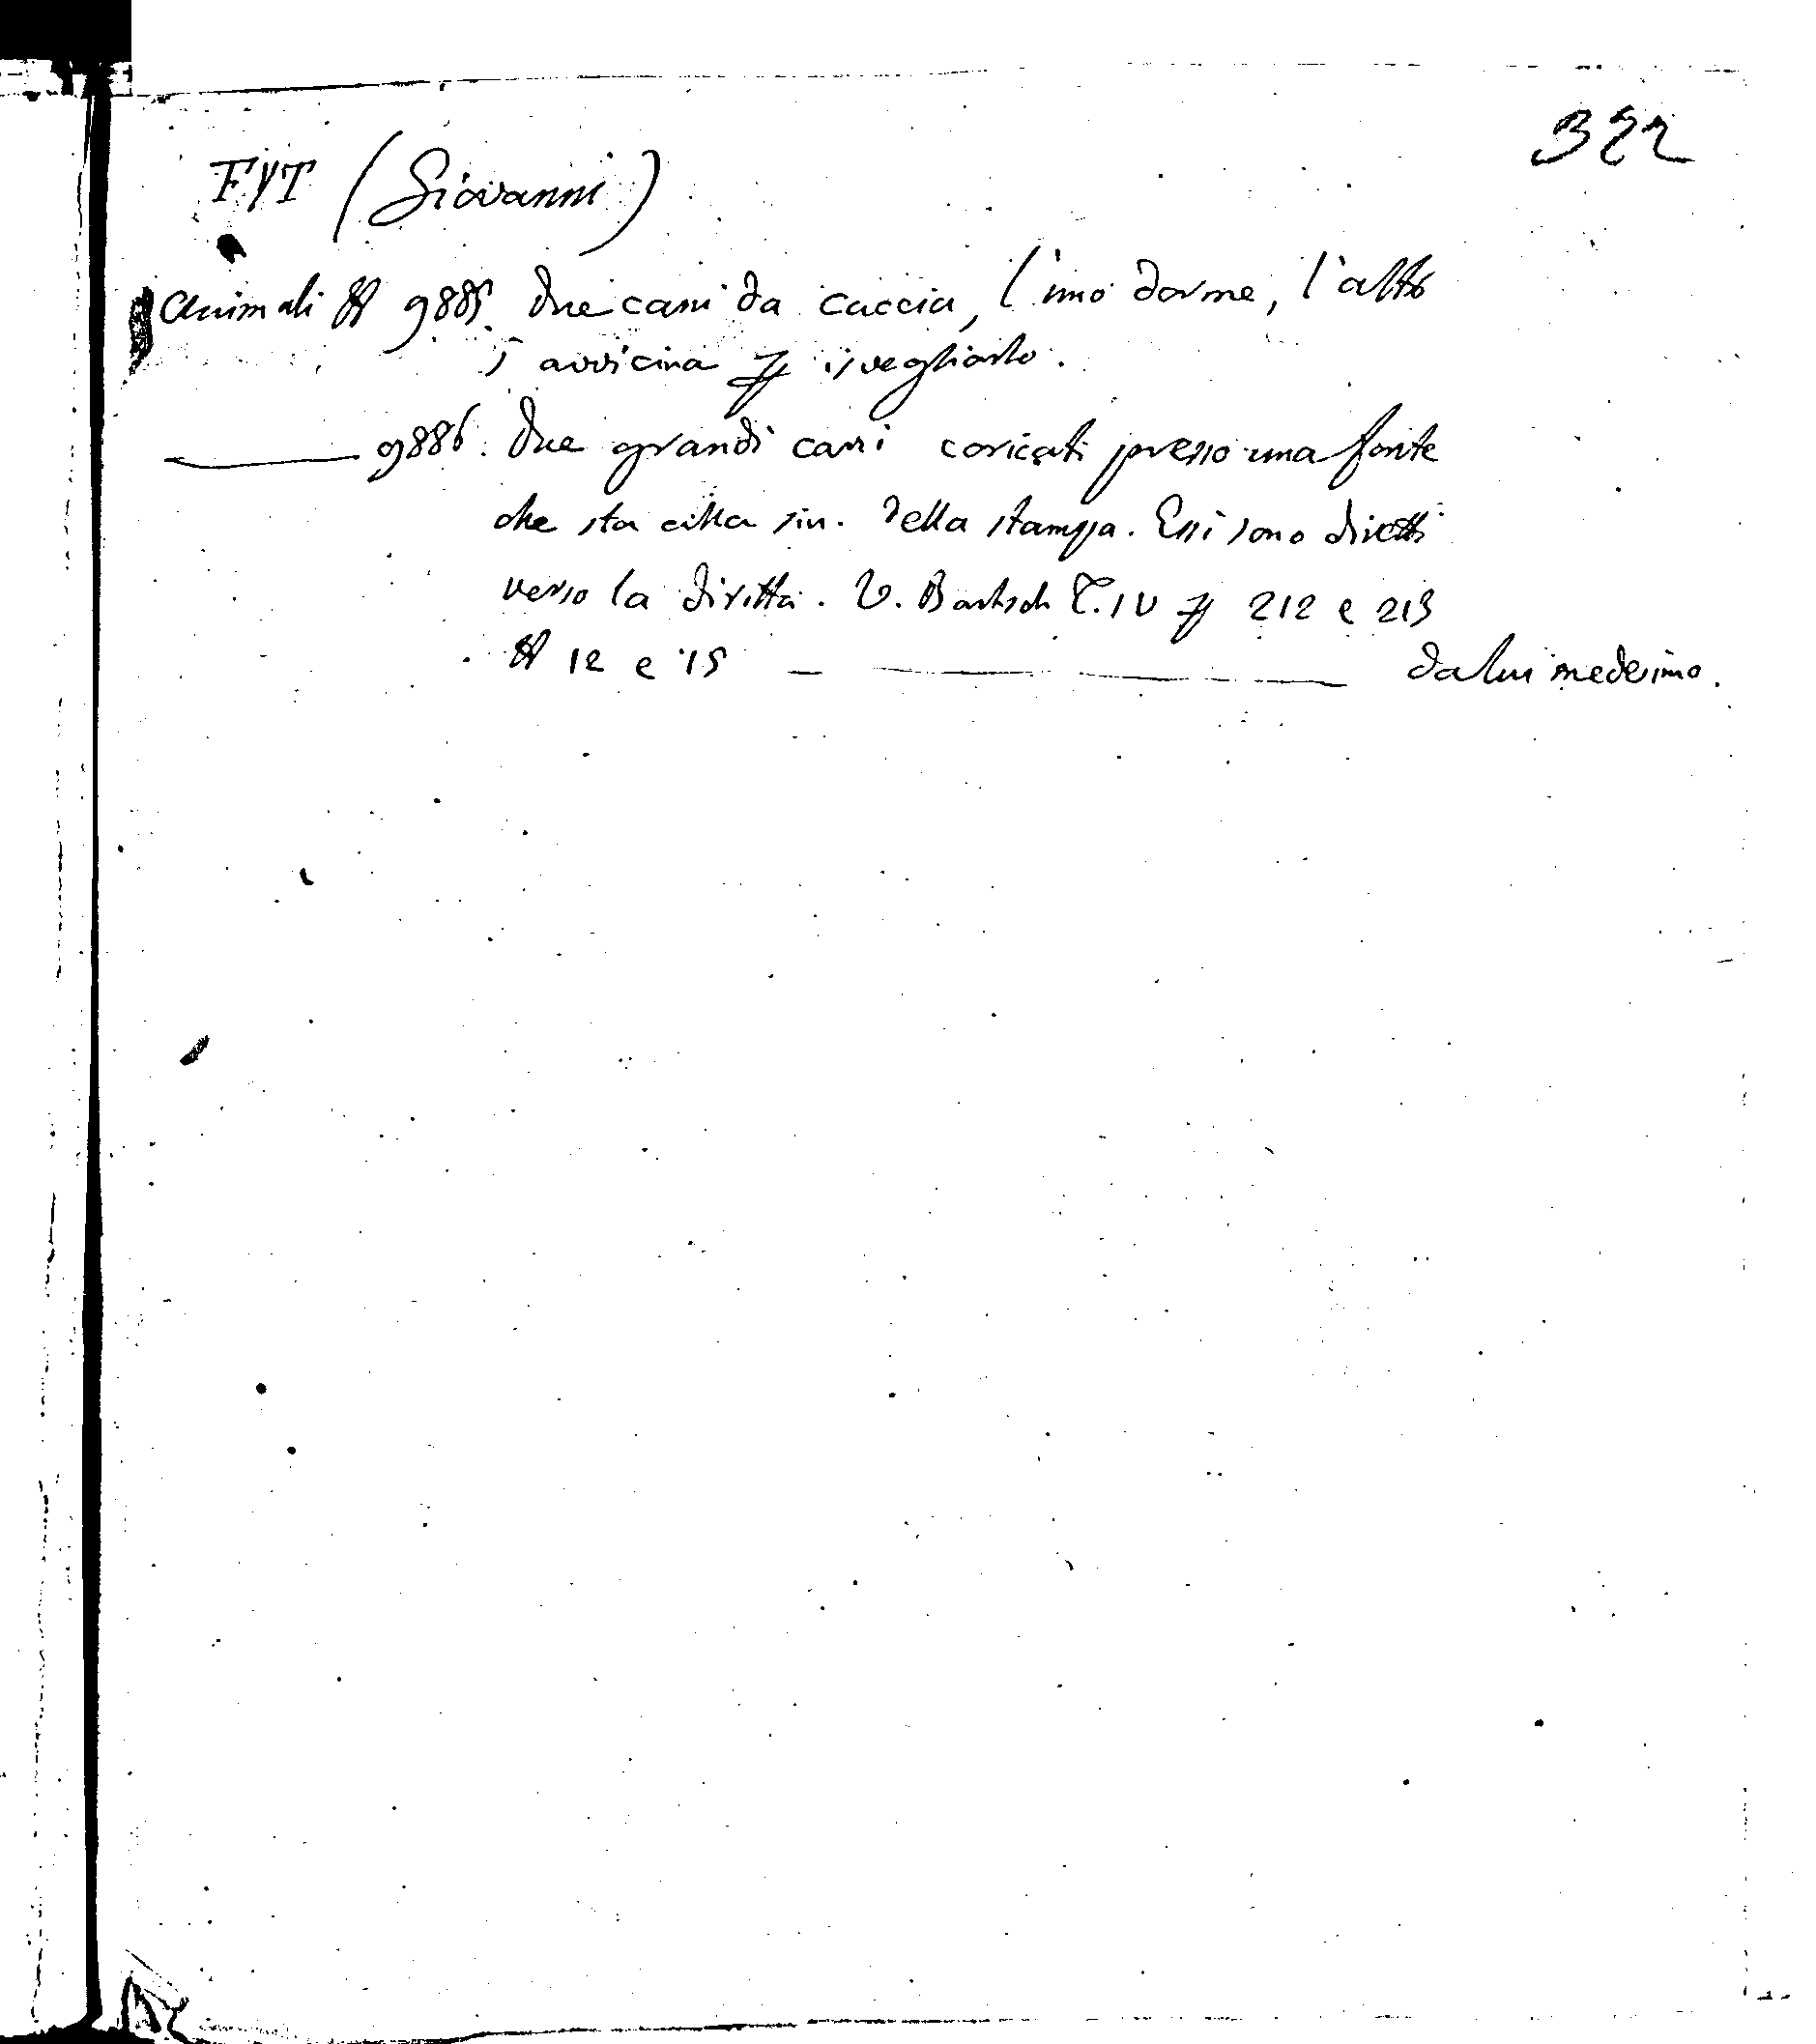 322
FYT (Giovanni)
Animali N 9885. Due cani da caccia, l'uno dorme, l'altro
s'avvicina p isvegliarlo.
——— 9886. Due grandi cani coricati presso una fonte
che sta alla sin. della stampa. Essi sono diretti
verso la diritta. V. Bartsch T. IV p 212 e 213
N 12 e 15 — ——————— da lui medesimo.